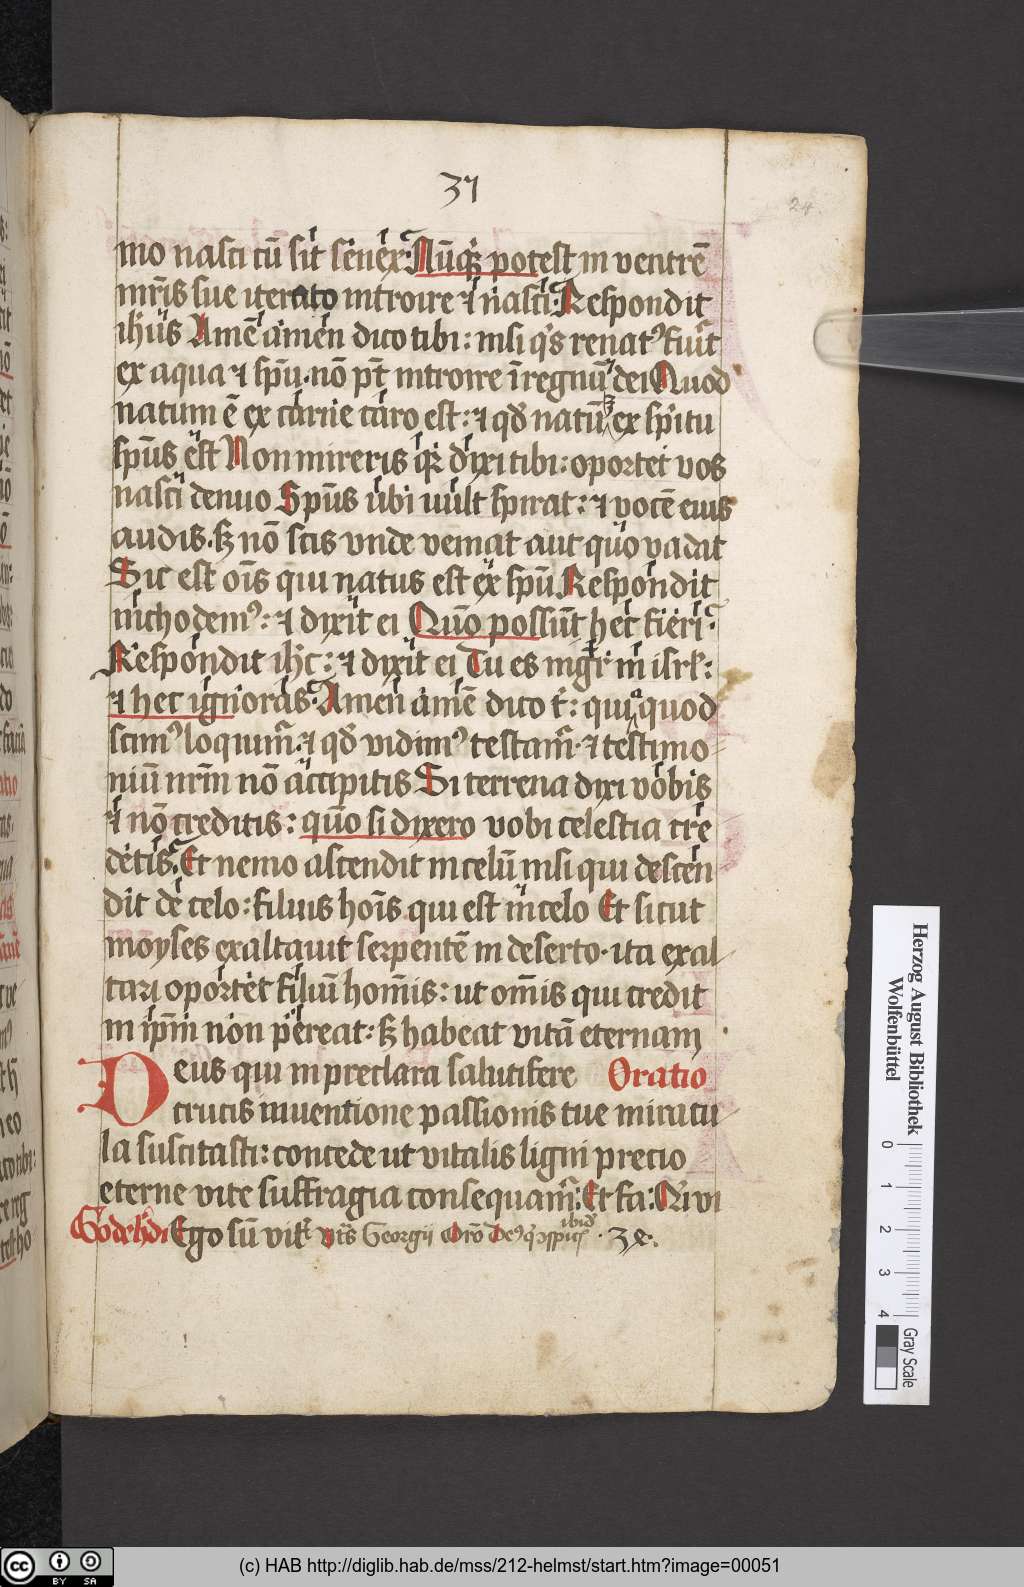 37
24
mo nasci cū sit senex Nūq̄ potest in ventrē
mr̄is sue iterato introire ⁊ nasci Respondit
ih̄us Amē amen dico tibi: nisi q's renatꝰ fuīt
ex aqua ⁊ sp̄u nō pt̄ introire ī regnū dei Quod
natum ē ex carne caro est: ⁊ qd̄ natū ex sp̄itu
sp̄us est Non mireris q̄ dixi tibi: oportet vos
nasci denuo Sp̄us ubi vult spirat: ⁊ vocē eius
audis. sꝫ nō scis vnde veniat aut quo vadat
Sic est oīs qui natus est ex sp̄u Respondit
nichodemꝰ: ⁊ dixit ei Quō possūt hec fieri
Respondit ih̄c: ⁊ dixit ei Tu es mgr̄ in isrl:
⁊ hec ignoras Amen amē dico t': quia quod
scimꝰ loquimr̄ ⁊ qd̄ vidimꝰ testamr̄ ⁊ testimo
niū nr̄m nō accipitis Si terrena dixi vobis
⁊ nō creditis: quō si dixero vobi celestia cre
detis Et nemo ascendit in celū nisi qui descen
dit de celo: filius hoīs qui est in celo Et sicut
moyses exaltauit serpentē in deserto ita exal
tari oportet filiū hom̄is: ut om̄is qui credit
in ip̄m non pereat: sꝫ habeat vitā eternam
Deus qui in preclara salutifere Oratio
crucis inuentione passionis tue miracu
la suscitasti: concede ut vitalis ligni precio
eterne vite suffragia consequamr̄ Et fa: Qui vi
Godehdi Ego sū vit' vīs Georgii Orō Deꝰ q' ↄspicis ibid' 38.
Herzog August Bibliothek
Wolfenbüttel
0 1 2 3 4
Gray Scale
cc BY SA
(c) HAB http://diglib.hab.de/mss/212-helmst/start.htm?image=00051